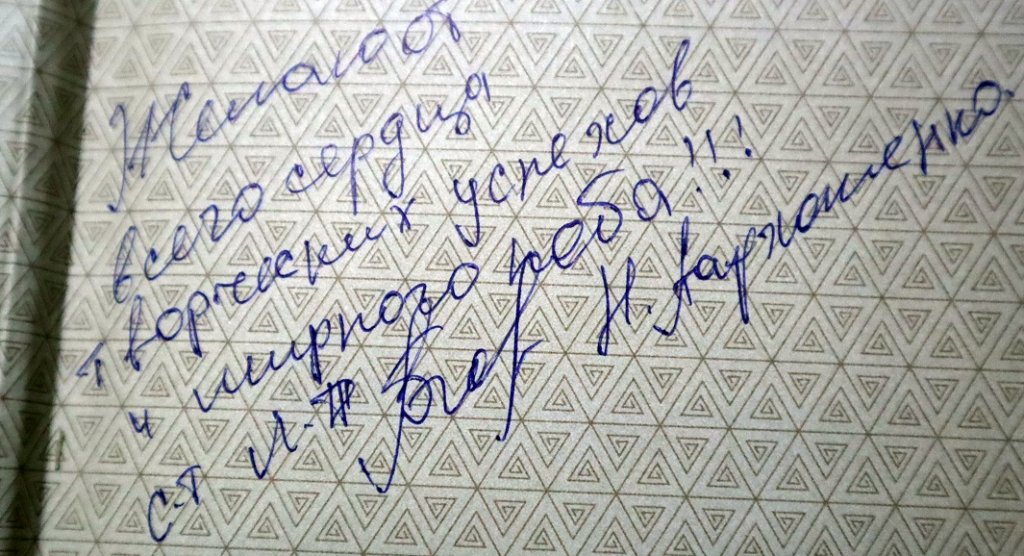 Желаю от
всего сердца
творческих успехов
и мирного неба!!!
с-т Л-Т Н. Пархоменко.